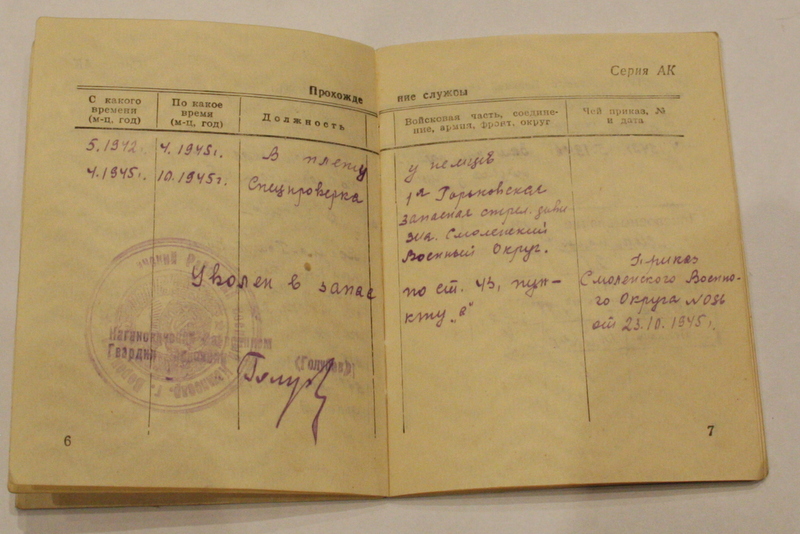 Серия АК
Прохождение службы
С какого времени (м-ц, год)
По какое время (м-ц, год)
Должность
Войсковая часть, соединение, армия, фронт, округ
Чей приказ, № и дата
5.1942г. 4.1945г. В плену у немцев
4.1945г. 10.1945г. Спецпроверка 1ая Горьковская
запасная стрел. диви
зия. Смоленский
Военный Округ.
Уволен в запас по ст. 43, пун-
кту „а"
Приказ
Смоленского Военно-
го Округа N 036
от 23.10.1945г.
Гвардии
(Голубев)
6
7